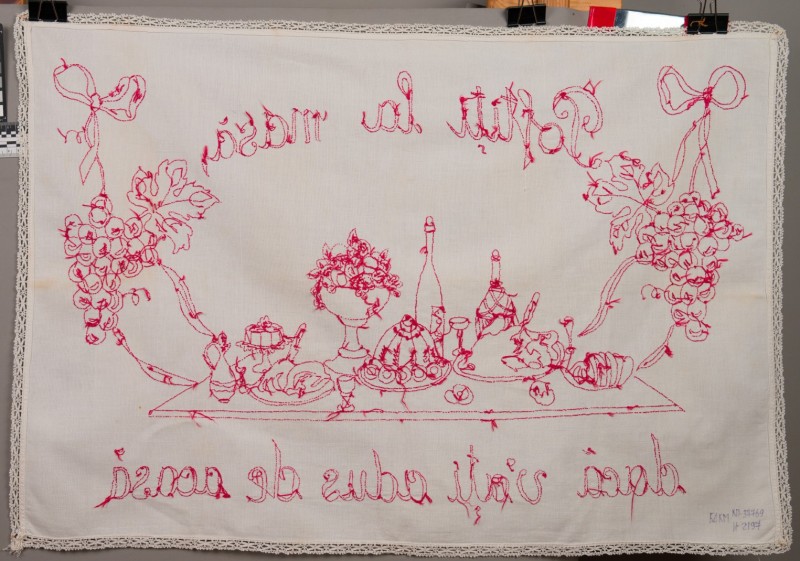 Poftiți la masă,
dacă v'ați adus de acasă